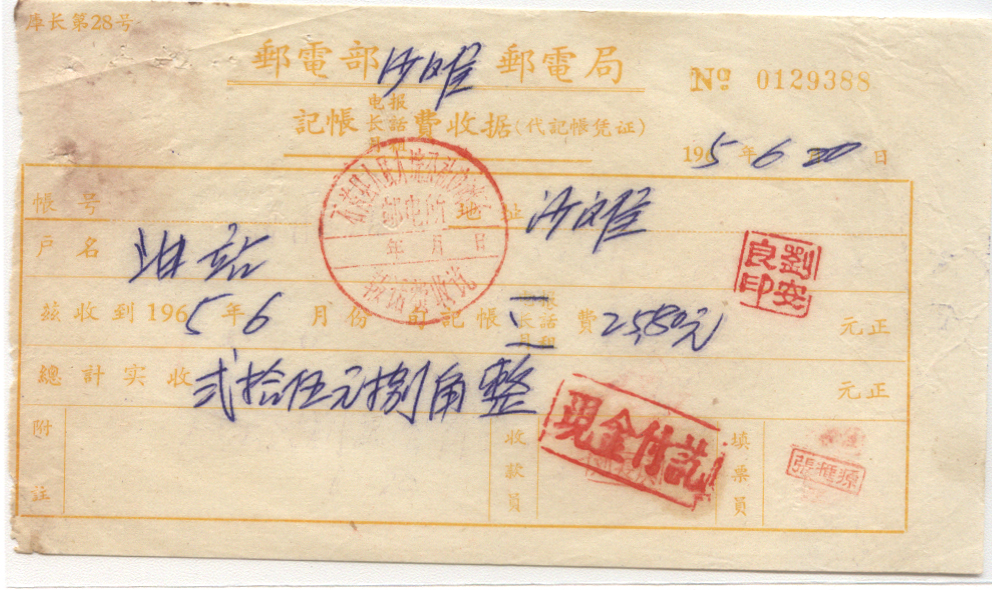 库长第28号
郵電部沙㘰郵電局
Nº 0129388
記帳电报长話月租費收据(代記帳凭证)
1965年6月20日
帳号 地址 沙
户名 油站
邮电所
年 月 日
劉安良印
兹收到1965年6月份 記帳 电报长話月租 費 25.80元 元正
總計实收 弍拾伍元捌角整 元正
現金付訖
附註 收款員 填票員